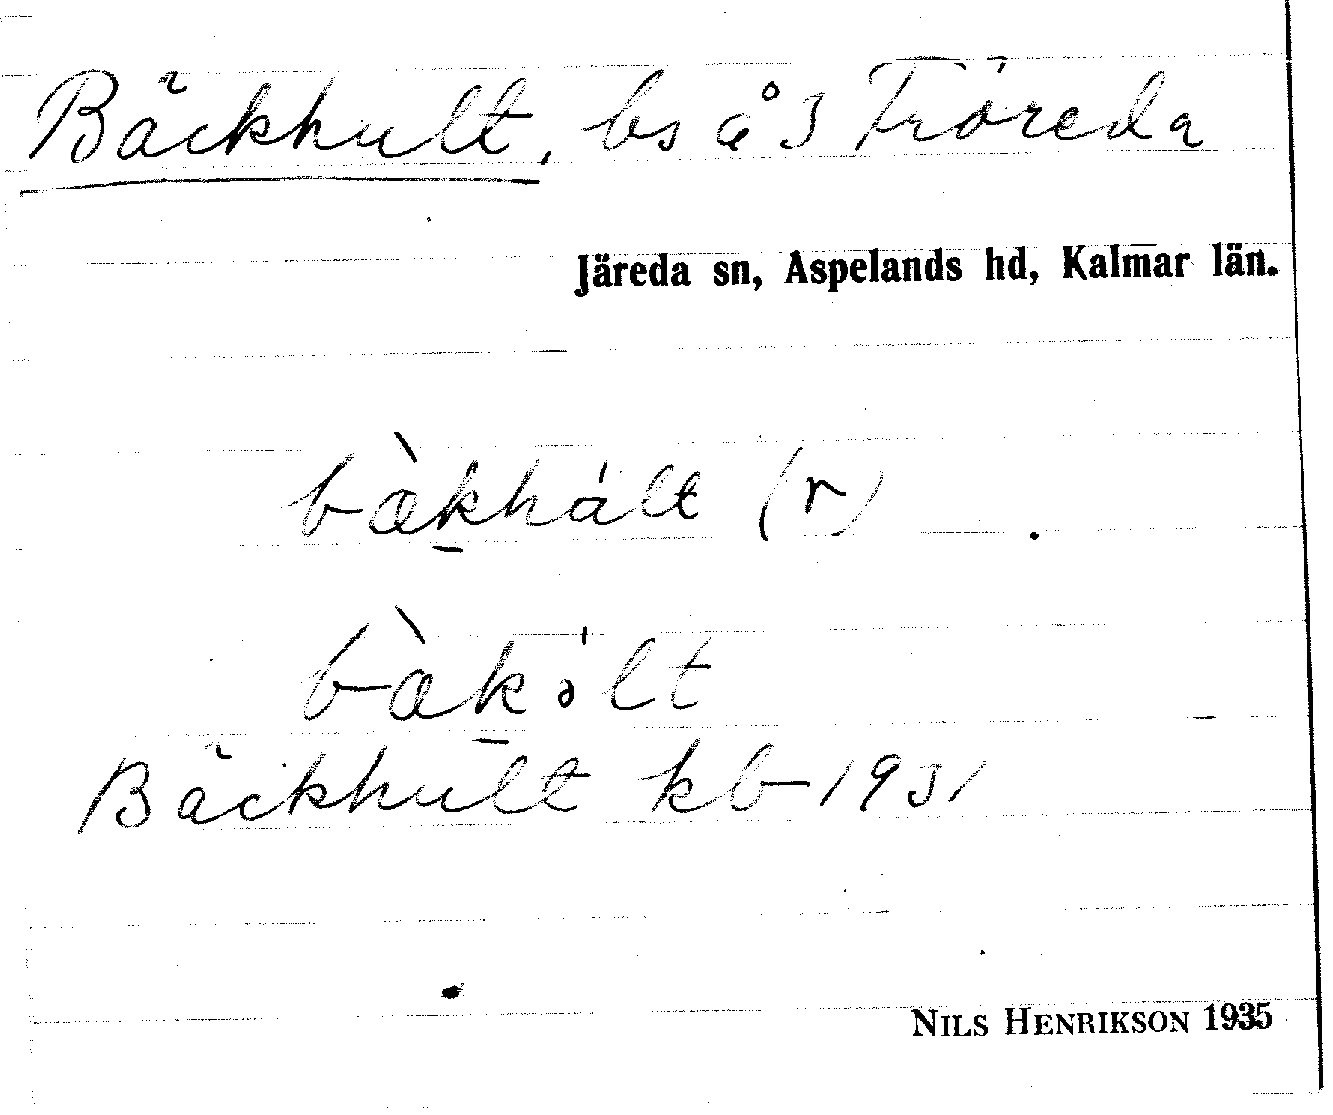 Bäckhult, bs å 3 Fröreda
Järeda sn, Aspelands hd, Kalmar län.
bæ̀khált (r)
bæ̀kə́lt
Bäckhult kb 1931
NILS HENRIKSON 1935